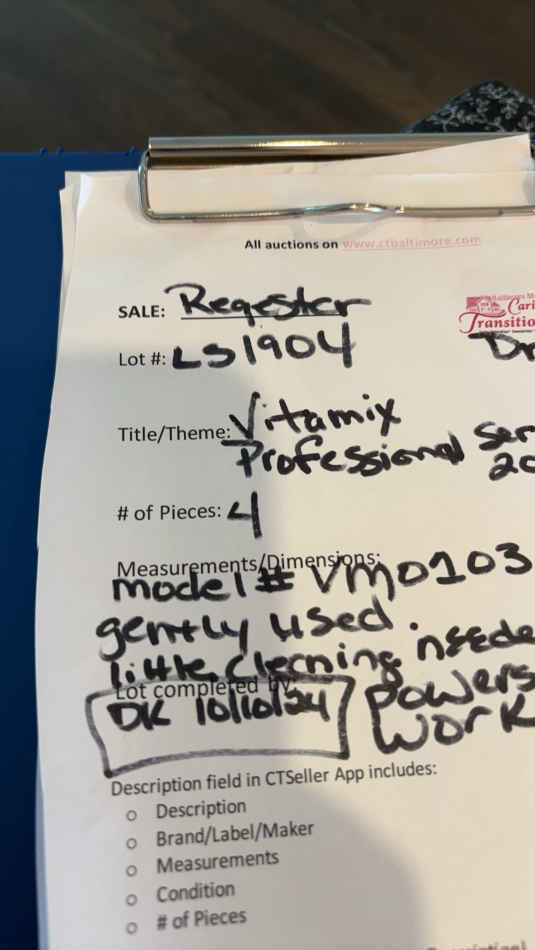 All auctions on www.ctbaltimore.com
SALE: Regester
Cari
Transitio
Lot #: LS1904
Dr
Title/Theme: Vitamix
Professional Ser
20
# of Pieces: 4
Measurements/Dimensions:
model # VM0103
gently used.
little cleaning neede
Lot completed by:
DK 10/10/24
Powers
Work
Description field in CTSeller App includes:
o Description
o Brand/Label/Maker
o Measurements
o Condition
o # of Pieces